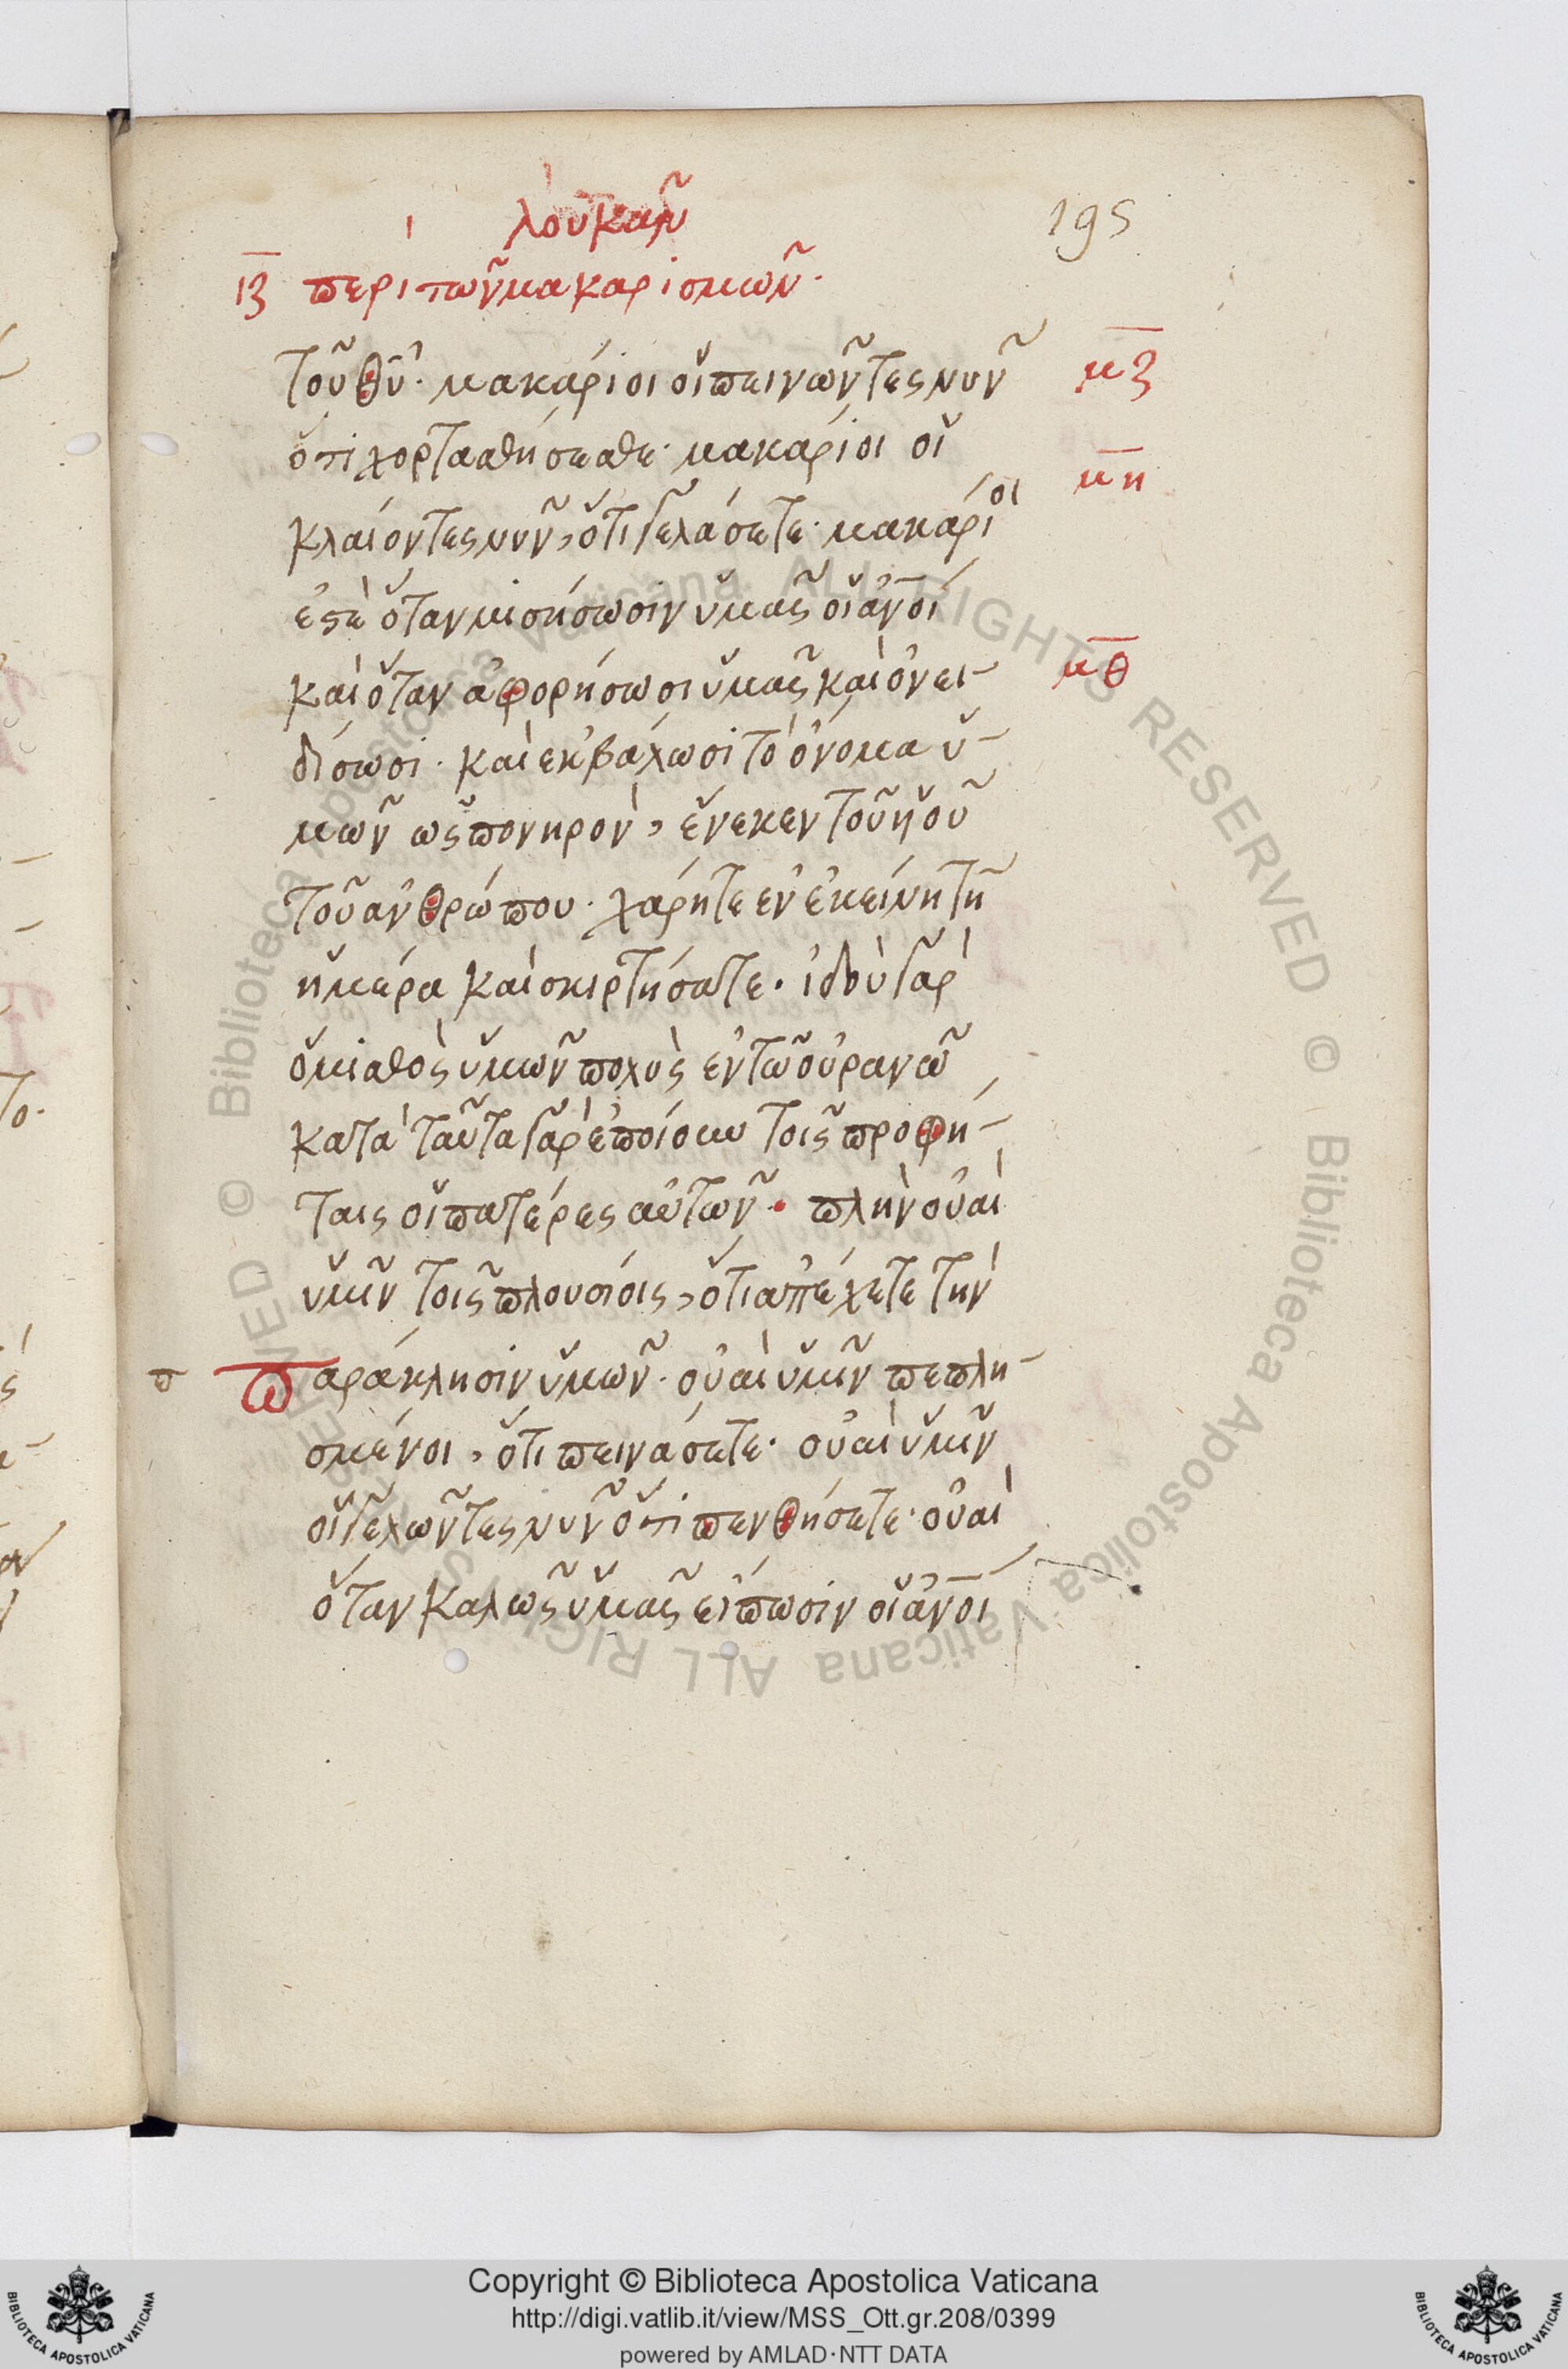 λουκᾶν
195
ιζ περι τῶν μακαρισμῶν·
τοῦ θῦ· μακάριοι οἱ πεινῶντες νῦν
μζ
ὅτι χορτασθήσεσθε· μακάριοι οἱ
μη
κλαίοντες νῦν, ὅτι γελάσετε· μακάριοι
ἐστὲ ὅταν μισήσωσιν ὑμᾶς οἱ ἄνοι
καὶ ὅταν ἀφορήσωσι ὑμᾶς καὶ ὀνει-
μθ
δίσωσι· καὶ ἐκβάλωσι τὸ ὄνομα ὑ-
μῶν ὡς πονηρὸν, ἕνεκεν τοῦ υἱοῦ
τοῦ ἀνθρώπου· χάρητε ἐν ἐκείνη τῆ
ἡμέρα καὶ σκιρτήσατε· ἰδοὺ γὰρ
ὁ μισθὸς ὑμῶν πολὺς ἐν τῶ οὐρανῶ
κατὰ ταῦτα γὰρ ἐποίουν τοῖς προφή-
ταις οἱ πατέρες αὐτῶν· πλὴν οὐαὶ
ὑμῖν τοῖς πλουσίοις, ὅτι ἀπέχετε τὴν
π παράκλησιν ὑμῶν· οὐαὶ ὑμῖν πεπλη-
σμένοι, ὅτι πεινάσετε· οὐαὶ ὑμῖν
οἱ γελῶντες νῦν ὅτι πενθήσετε· οὐαὶ
ὅταν καλῶς ὑμᾶς εἴπωσιν οἱ ἄνοι
Copyright © Biblioteca Apostolica Vaticana
http://digi.vatlib.it/view/MSS_Ott.gr.208/0399
powered by AMLAD·NTT DATA